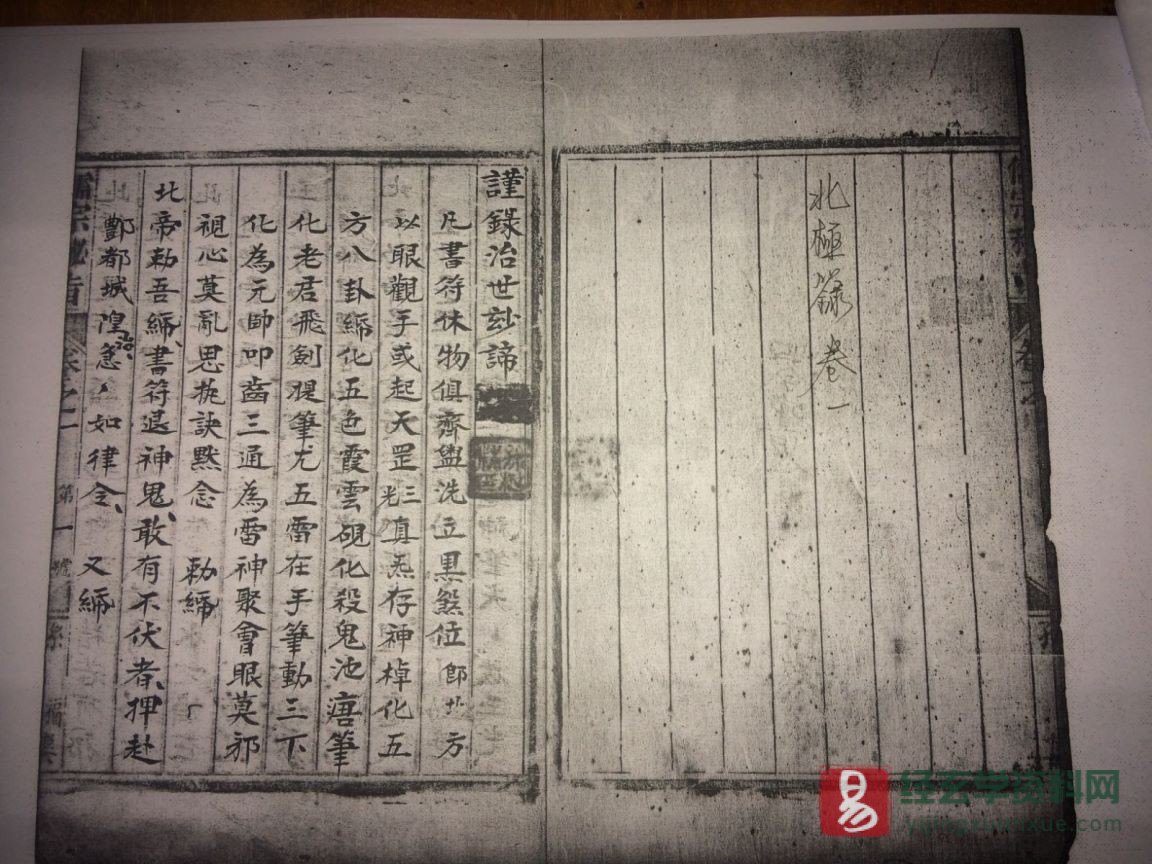 北極籙 卷一
謹錄治世玅諦
凡書符休物俱齊盥洗立黑煞位 即北方
以眼觀手或起天罡三光真炁存神棹化五
方八卦締化五色霞雲硯化殺鬼池唐筆
化老君飛劍提筆尤五雷在手筆動三下
化為元帥叩齒三通為雷神聚會眼莫邪
視心莫亂思執訣默念 勅締
北帝勅吾締、書符退神鬼、敢有不伏者、押赴
酆都城隍治、急〻如律令、 又締
第一號
易
经玄学资料网